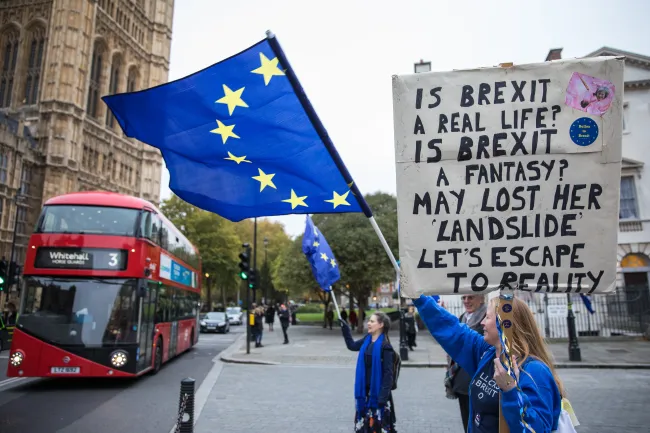 Whitehall
HORSE GUARDS
3
IS BREXIT
A REAL LIFE?
IS BREXIT
A FANTASY?
MAY LOST HER
'LANDSLIDE'
LET'S ESCAPE
TO REALITY